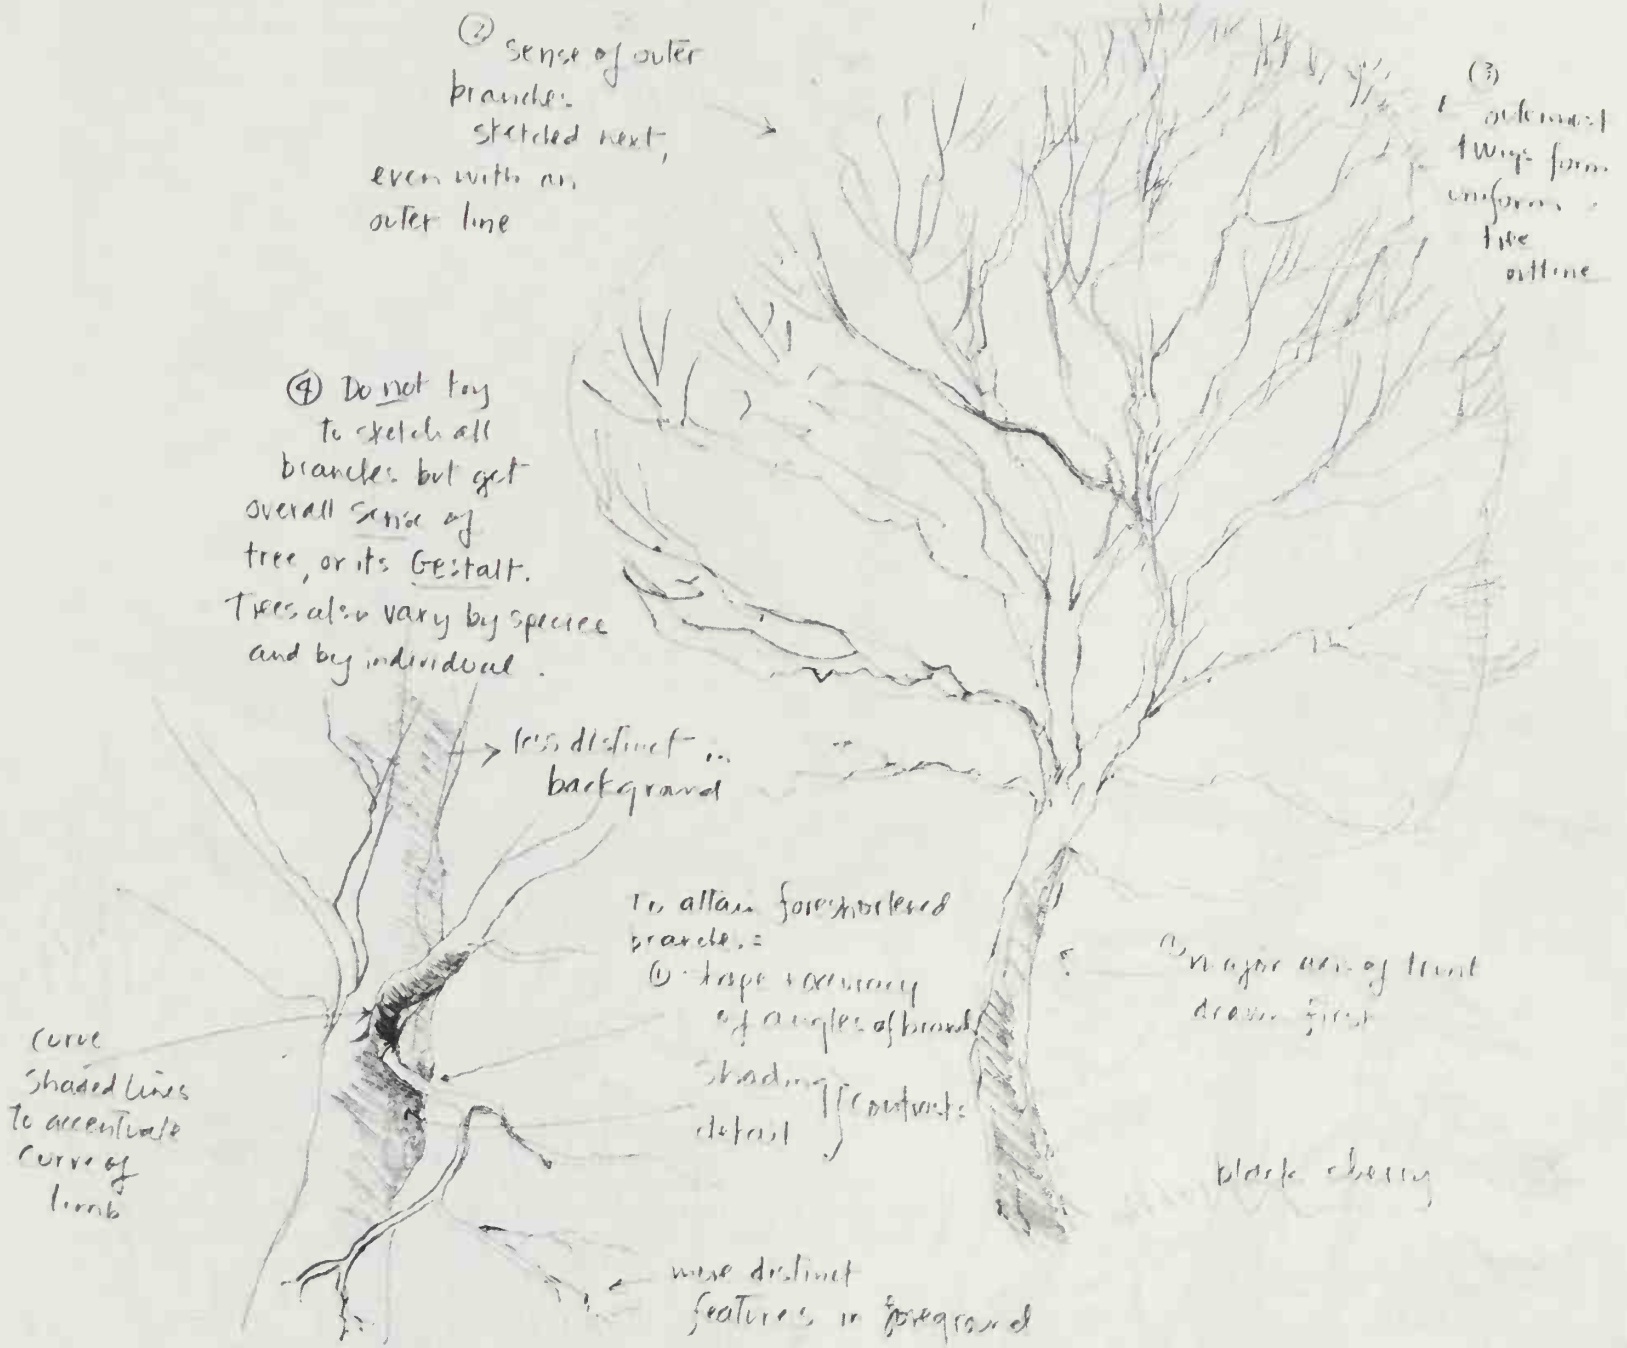 ② Sense of outer
branches
sketched next,
even with an
outer line
(3)
outermost
twigs form
uniform
tree
outline
④ Do not try
to sketch all
branches but get
overall sense of
tree, or its Gestalt.
Trees also vary by species
and by individual.
less distinct ...
background
To attain foreshortened
branches:
① shape + accuracy
of angles of branch
Shading
detail
} contrasts
(1) major axis of trunk
drawn first
curve
shaded lines
To accentuate
curve of
limb
black cherry
more distinct
features in foreground